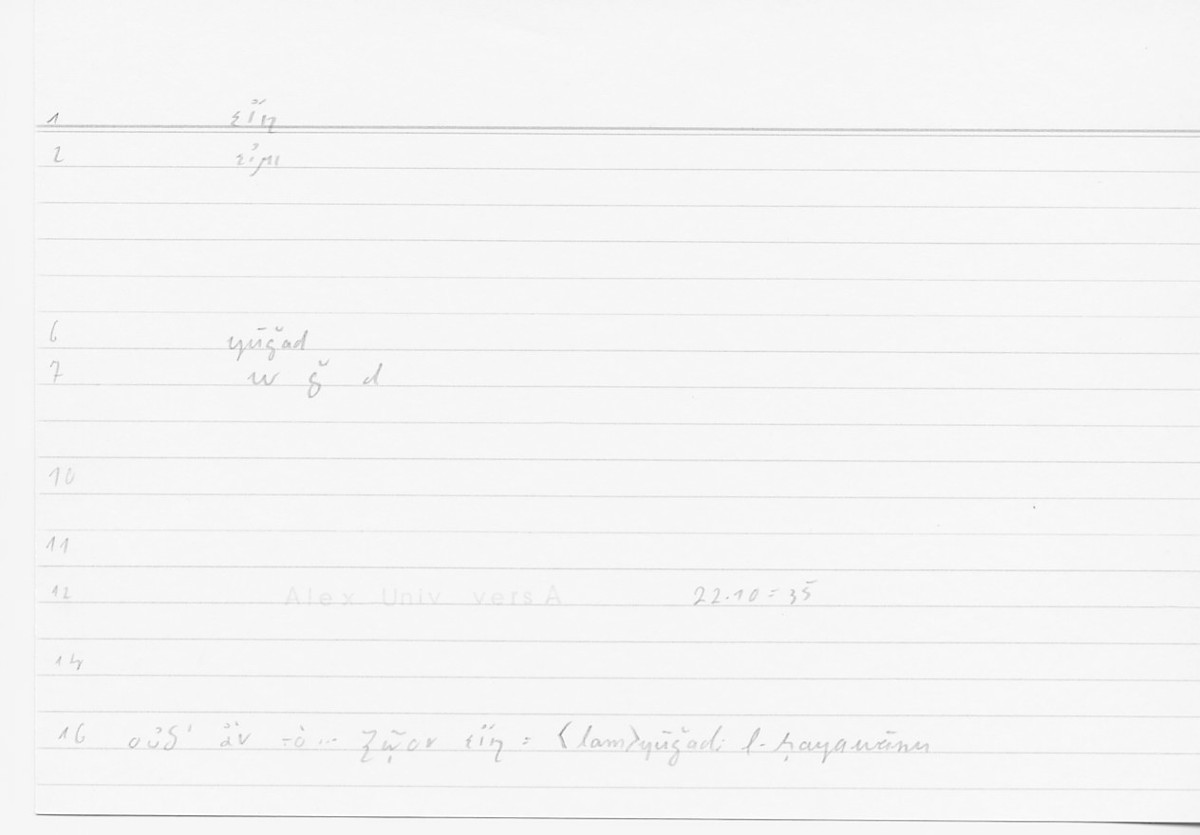 1 εἴη
2 εἰμι
6 yūǧad
7 w ǧ d
10
11
12 Alex Univ vers A 22.10 = 35
14
16 οὐδ' ἂν τὸ ... ζῷον εἴη = ⟨lam⟩yūǧadi l-ḥayawānu